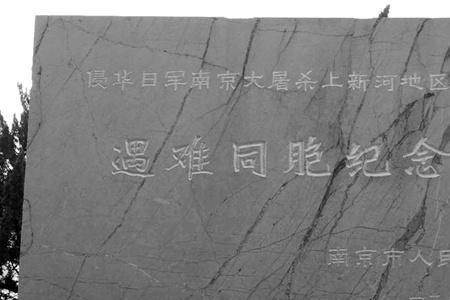 侵华日军南京大屠杀上新河地区
遇难同胞纪念
南京市人民